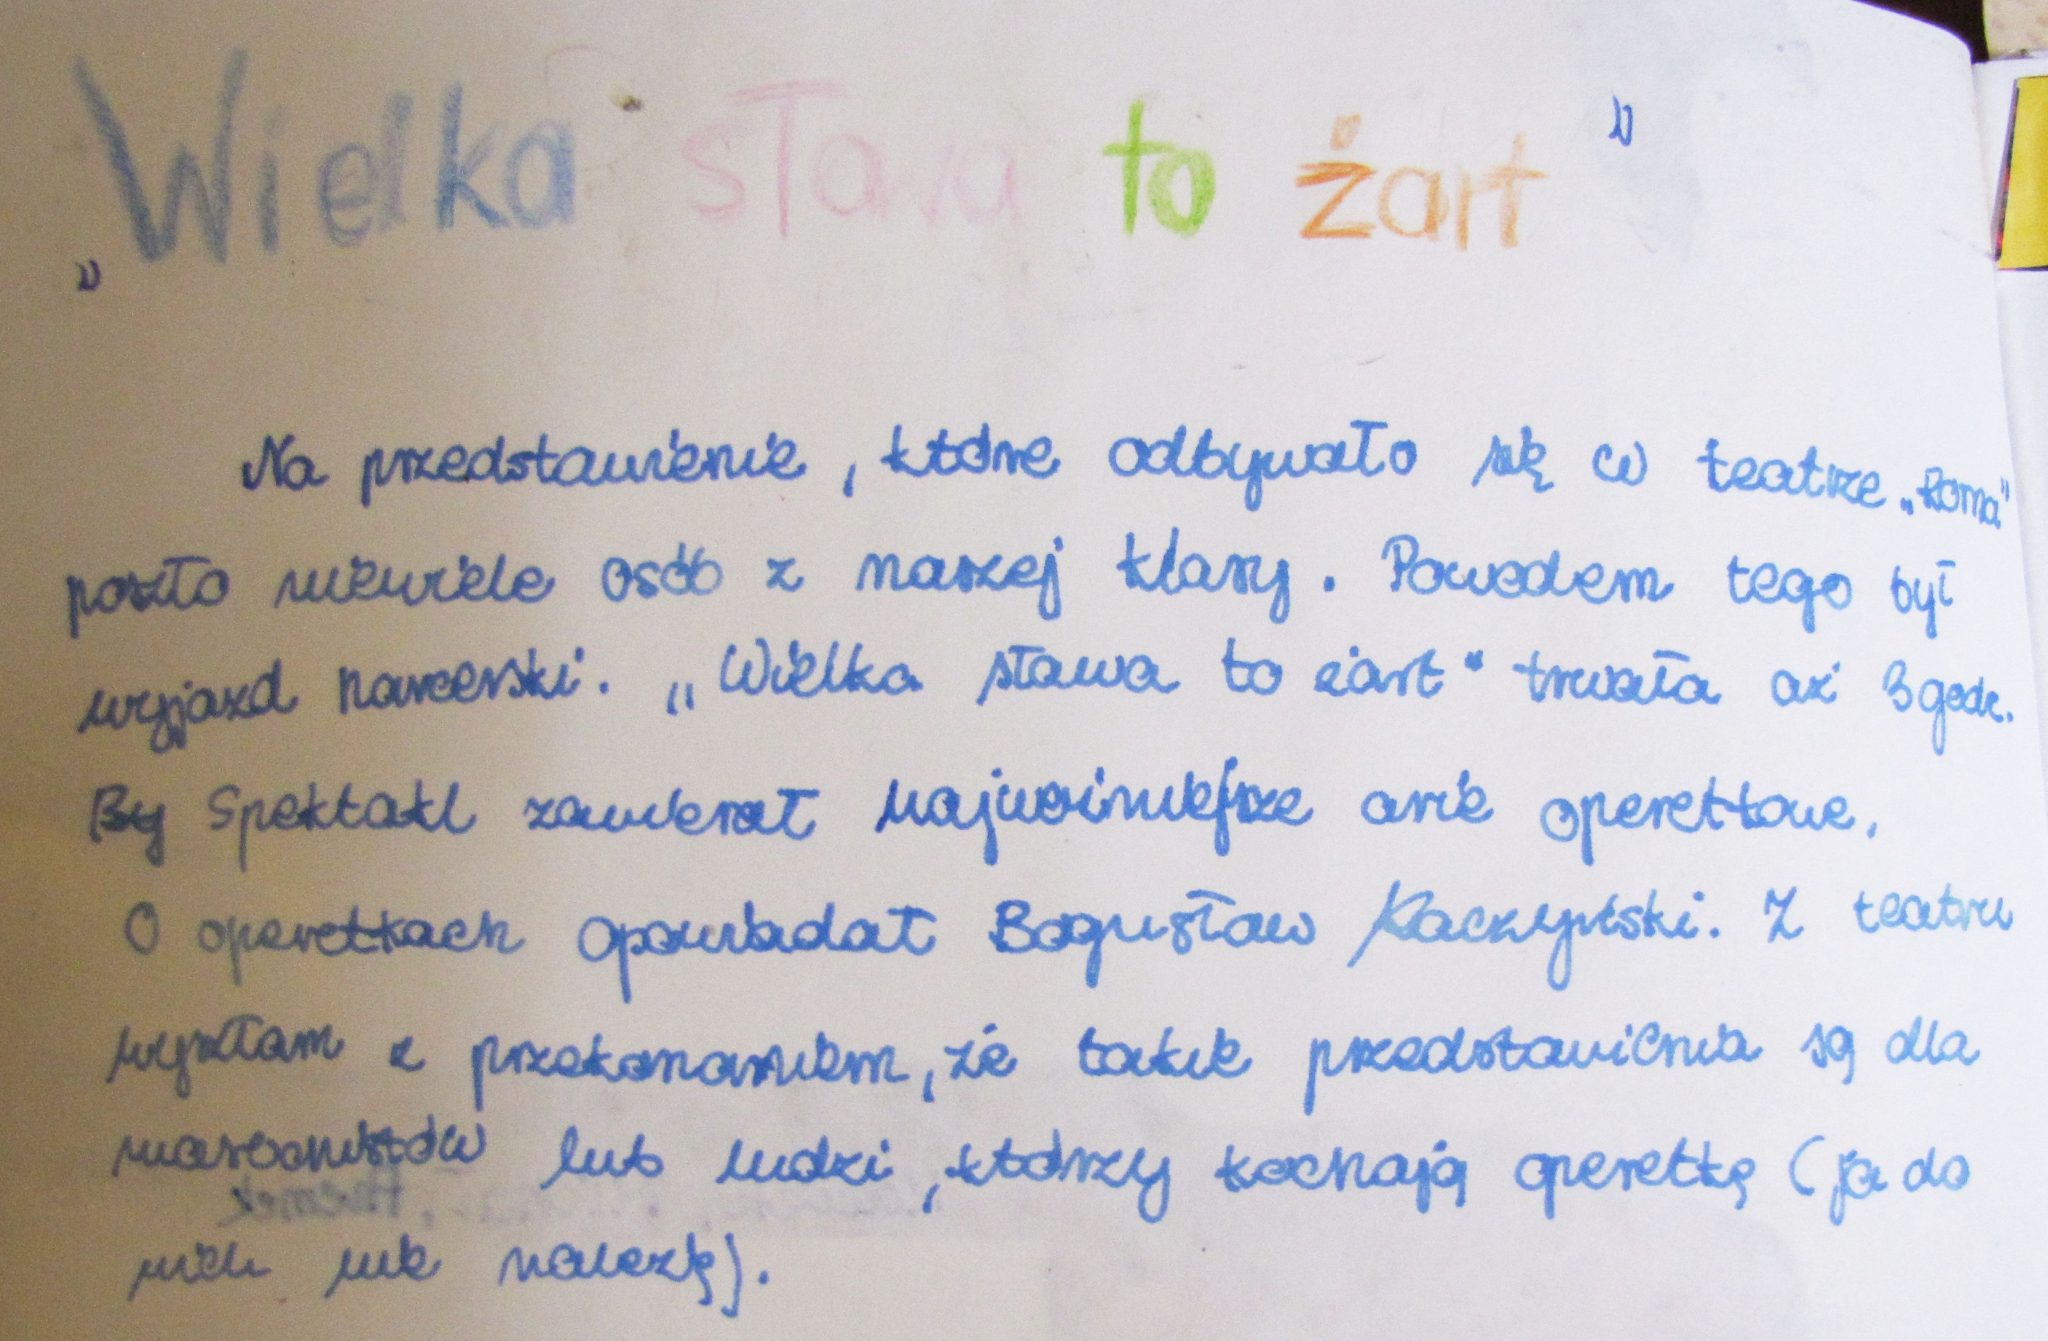 „Wielka sława to żart”
Na przedstawienie, które odbywało się w teatrze „Roma”
poszło niewiele osób z naszej klasy. Powodem tego był
wyjazd harcerski. „Wielka sława to żart" trwała aż 3 godz.
Spektakl zawierał najważniejsze arie operettowe.
O operetkach opowiadał Bogusław Kaczyński. Z teatru
wyszłam z przekonaniem, że takie przedstawienia są dla
masochistów lub ludzi, którzy kochają operetkę (ja do
nich nie należę).